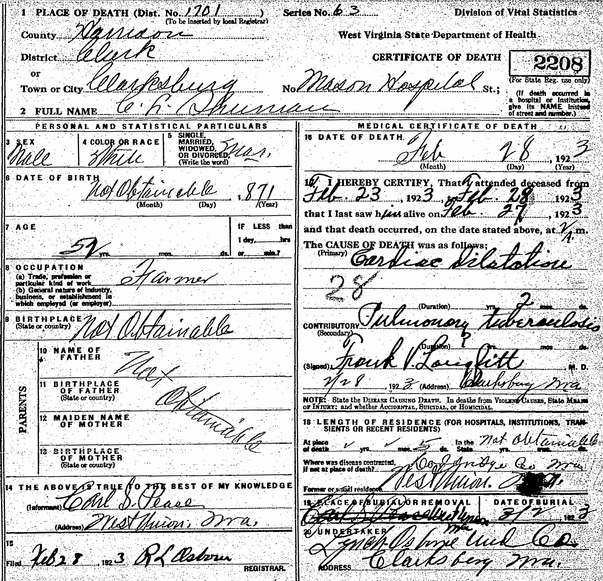 1 PLACE OF DEATH (Dist. No. 1701 Series No. 63 Division of Vital Statistics
(To be inserted by local Registrar)
County Harrison West Virginia State Department of Health
District Clark CERTIFICATE OF DEATH
or
2208
Town or City Clarksburg No. Mason Hospital St.;
(For State Reg. use only)
(If death occurred in a hospital or Institution, give its NAME instead of street and number.)
2 FULL NAME C. L. Shuman
PERSONAL AND STATISTICAL PARTICULARS
3 SEX Male
4 COLOR OR RACE White
5 SINGLE, MARRIED, WIDOWED OR DIVORCED (Write the word) Mar.
6 DATE OF BIRTH Not Obtainable, 1871
(Month) (Day) (Year)
7 AGE 52 yrs. mos. ds.
IF LESS than 1 day, hrs or min.?
8 OCCUPATION
(a) Trade, profession or particular kind of work Farmer
(b) General nature of industry, business, or establishment in which employed (or employer)
9 BIRTHPLACE Not Obtainable
(State or country)
PARENTS
10 NAME OF FATHER Not Obtainable
11 BIRTHPLACE OF FATHER
(State or country)
12 MAIDEN NAME OF MOTHER
13 BIRTHPLACE OF MOTHER
(State or country)
14 THE ABOVE IS TRUE TO THE BEST OF MY KNOWLEDGE
(Informant) Carl S. Pease
(Address) West Union, W Va.
15
Filed Feb 28, 1923 R L Osborn
REGISTRAR.
MEDICAL CERTIFICATE OF DEATH
16 DATE OF DEATH
Feb 28, 1923
(Month) (Day) (Year)
17 I HEREBY CERTIFY, That I attended deceased from
Feb. 23, 1923, Feb. 28, 1923
that I last saw him alive on Feb. 27, 1923
and that death occurred, on the date stated above, at m.
The CAUSE OF DEATH was as follows:
(Primary) Cardiac Dilatation
28
(Duration) yrs. 2 mos. ds.
CONTRIBUTORY Pulmonary tuberculosis
(Secondary)
(Duration) ? yrs. mos. ds.
(Signed) Frank V. M. D.
2/28 1923 (Address) Clarksburg W Va
NOTE: State the DISEASE CAUSING DEATH. In deaths from VIOLENT CAUSES, State MEANS OF INJURY; and whether ACCIDENTAL, SUICIDAL, or HOMICIDAL.
18 LENGTH OF RESIDENCE (FOR HOSPITALS, INSTITUTIONS, TRANSIENTS OR RECENT RESIDENTS)
At place of death 5 ds. In the Not Obtainable
Where was disease contracted, if not at place of death? Doddridge Co W Va.
Former or usual residence West Union
19 PLACE OF BURIAL OR REMOVAL DATE OF BURIAL
West Union W Va 3/2, 1923
20 UNDERTAKER
Lynch Osborne Und Co
ADDRESS Clarksburg W Va.